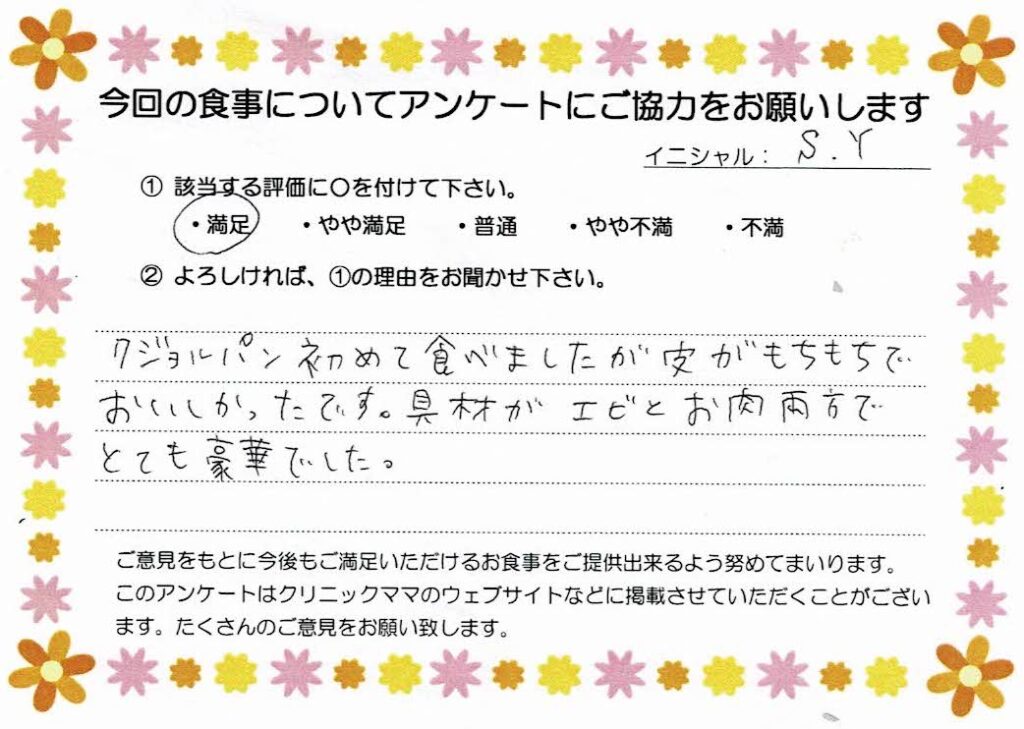 今回の食事についてアンケートにご協力をお願いします
イニシャル： S.Y
① 該当する評価に〇を付けて下さい。
・満足 ・やや満足 ・普通 ・やや不満 ・不満
② よろしければ、①の理由をお聞かせ下さい。
クジョルパン初めて食べましたが皮がもちもちで
おいしかったです。具材がエビとお肉両方で
とても豪華でした。
ご意見をもとに今後もご満足いただけるお食事をご提供出来るよう努めてまいります。
このアンケートはクリニックママのウェブサイトなどに掲載させていただくことがござい
ます。たくさんのご意見をお願い致します。